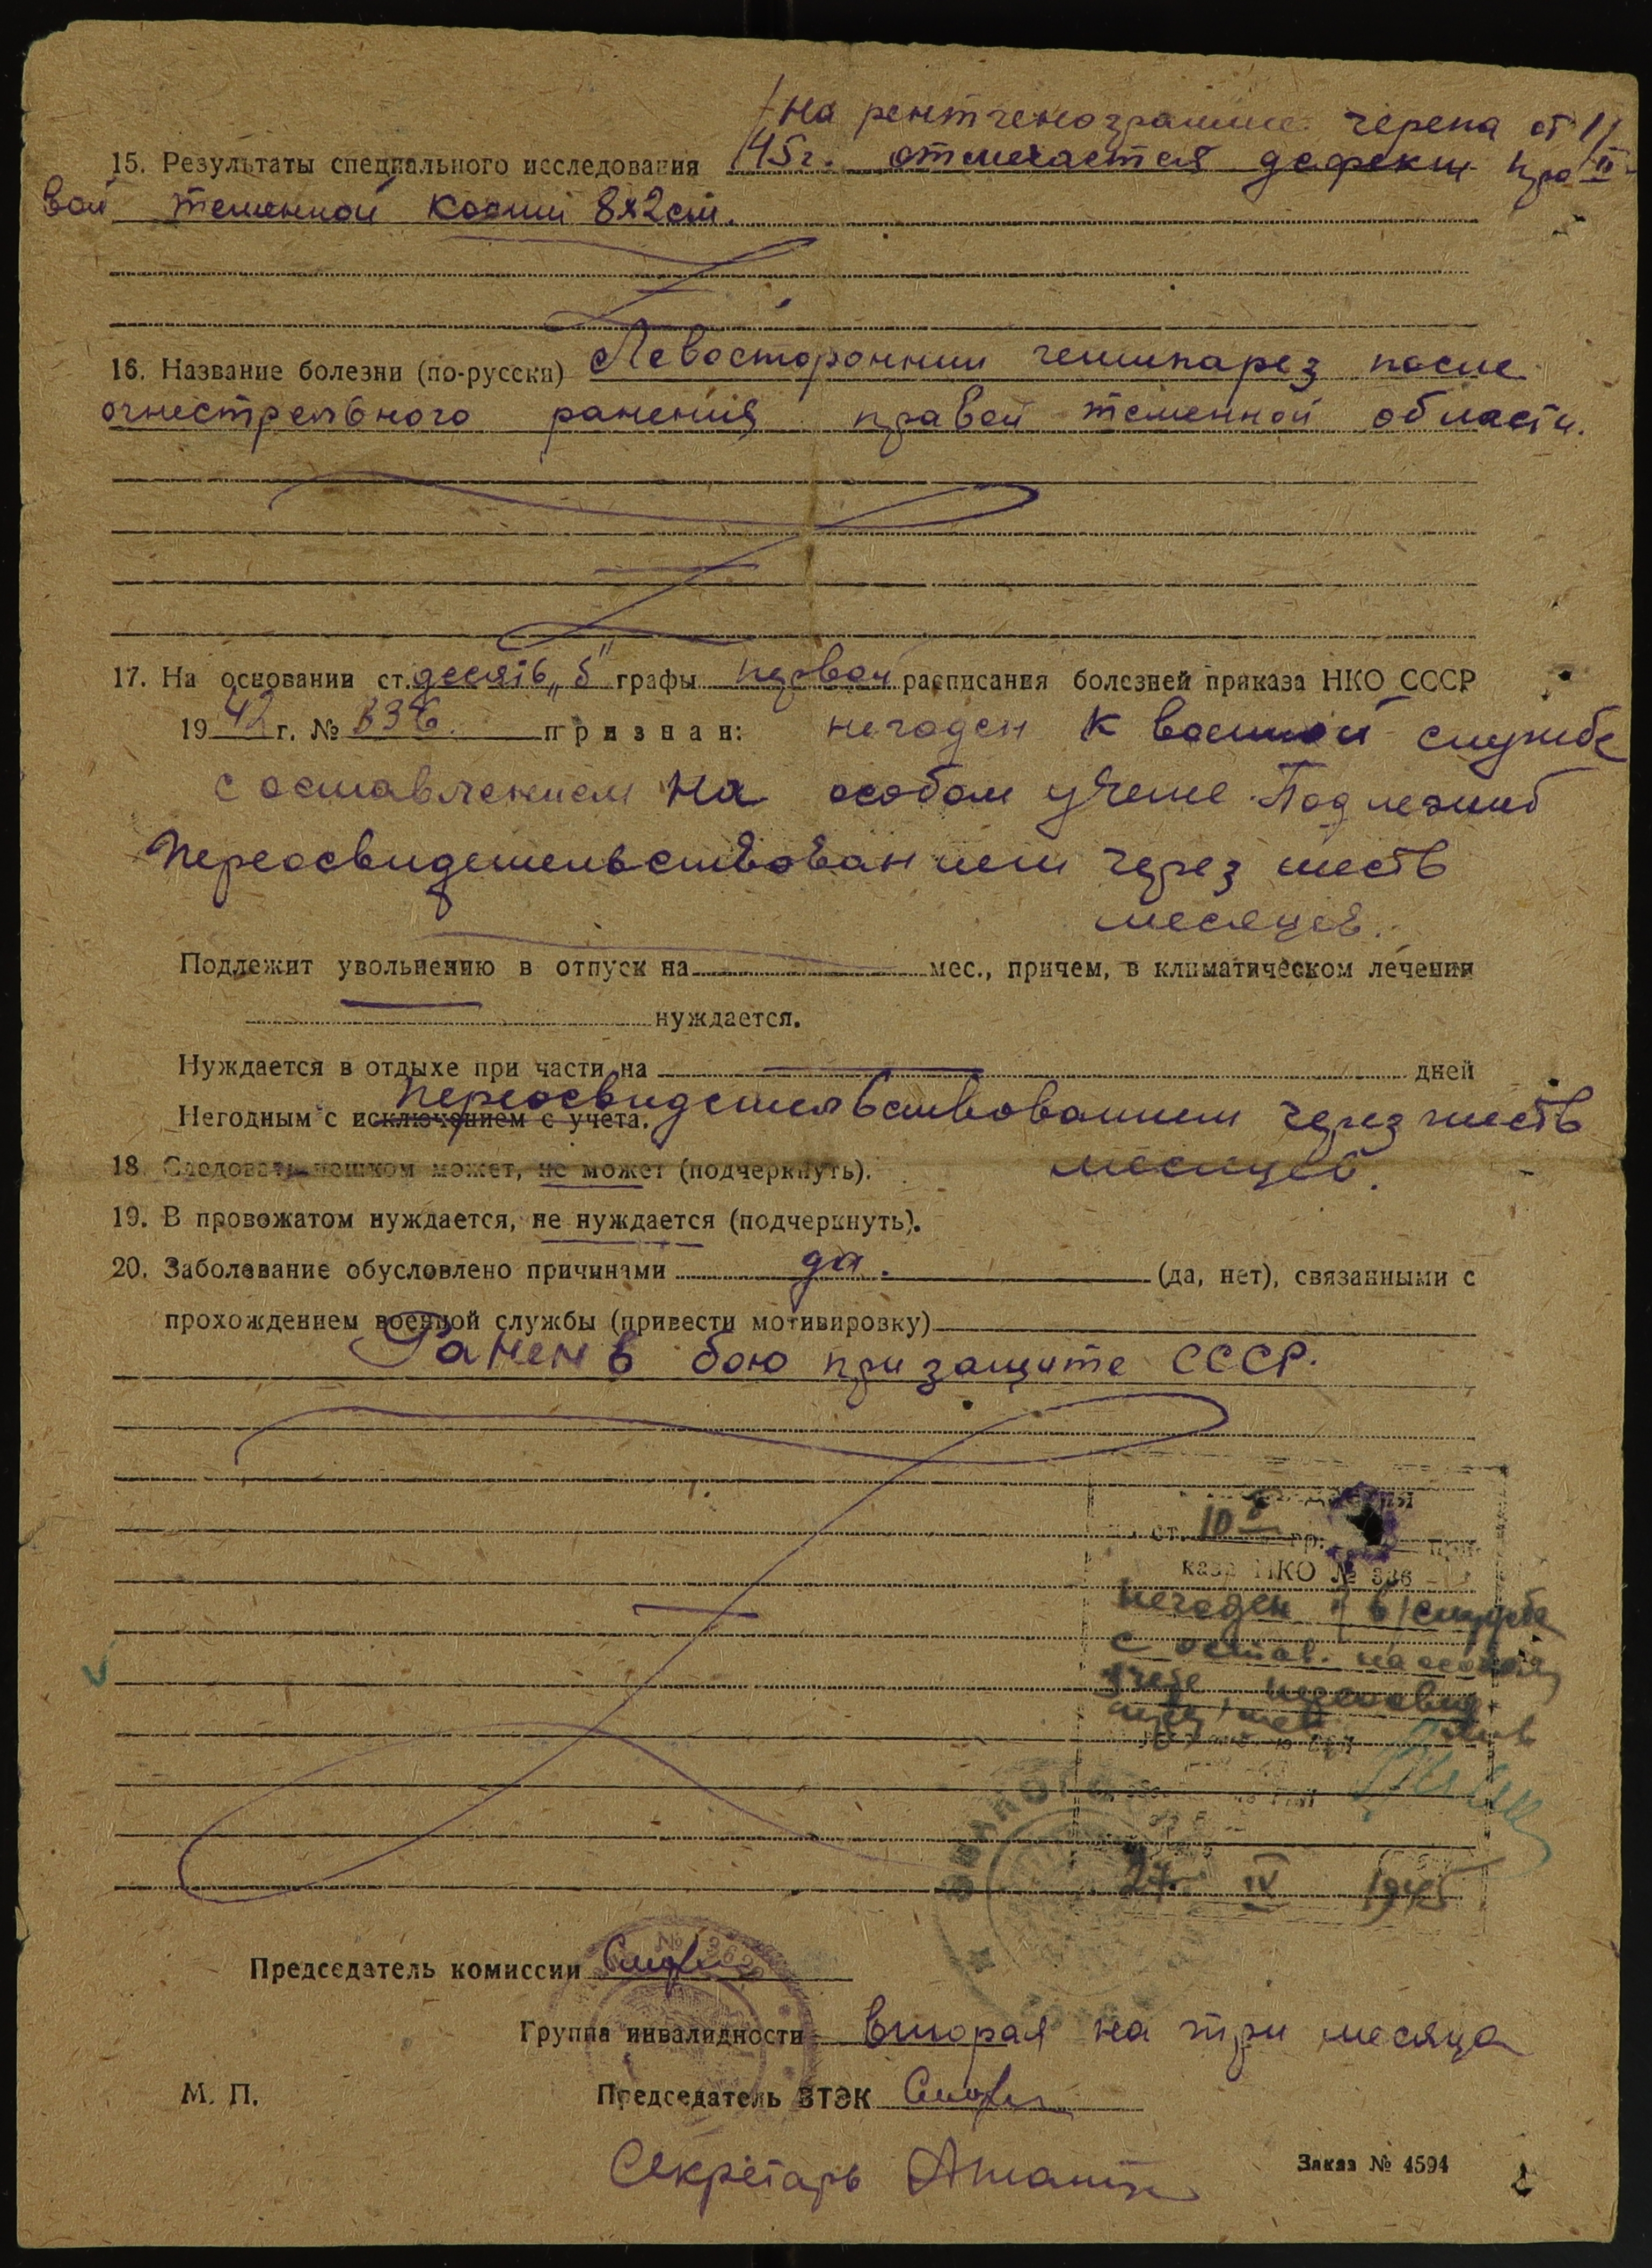 На рентгенограмме черепа от 1/
15. Результаты специального исследования 45г. отмечается дефект пра II
вой теменной кости 8х2см.
16. Название болезни (по-русски) Левосторонний гемипарез после
огнестрельного ранения правой теменной области.
17. На основании ст. десять „б" графы первой расписания болезней приказа НКО СССР
19 42 г. № 336. признан: негоден к военной службе
с оставлением на особом учете. Подлежит
переосвидетельствованием через шесть
месяцев.
Подлежит увольнению в отпуск на мес., причем, в климатическом лечении
нуждается.
Нуждается в отдыхе при части на дней
переосвидетельствованием через шесть
Негодным с исключением с учета.
месяцев.
18. Следовать пешком может, не может (подчеркнуть).
19. В провожатом нуждается, не нуждается (подчеркнуть).
20. Заболевание обусловлено причинами да. (да, нет), связанными с
прохождением военной службы (привести мотивировку)
Ранен в бою при защите СССР.
ст. 10 б гр. при-
каза НКО № 336
негоден к в/службе
с остав. на особом
учете
27. IV 1945
Председатель комиссии
Группа инвалидности вторая на три месяца
М. П. Председатель ВТЭК
Секретарь
Заказ № 4594